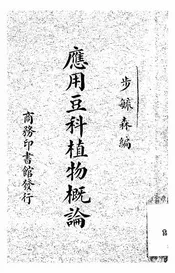 步毓森編
應用豆科植物概論
商務印書館發行